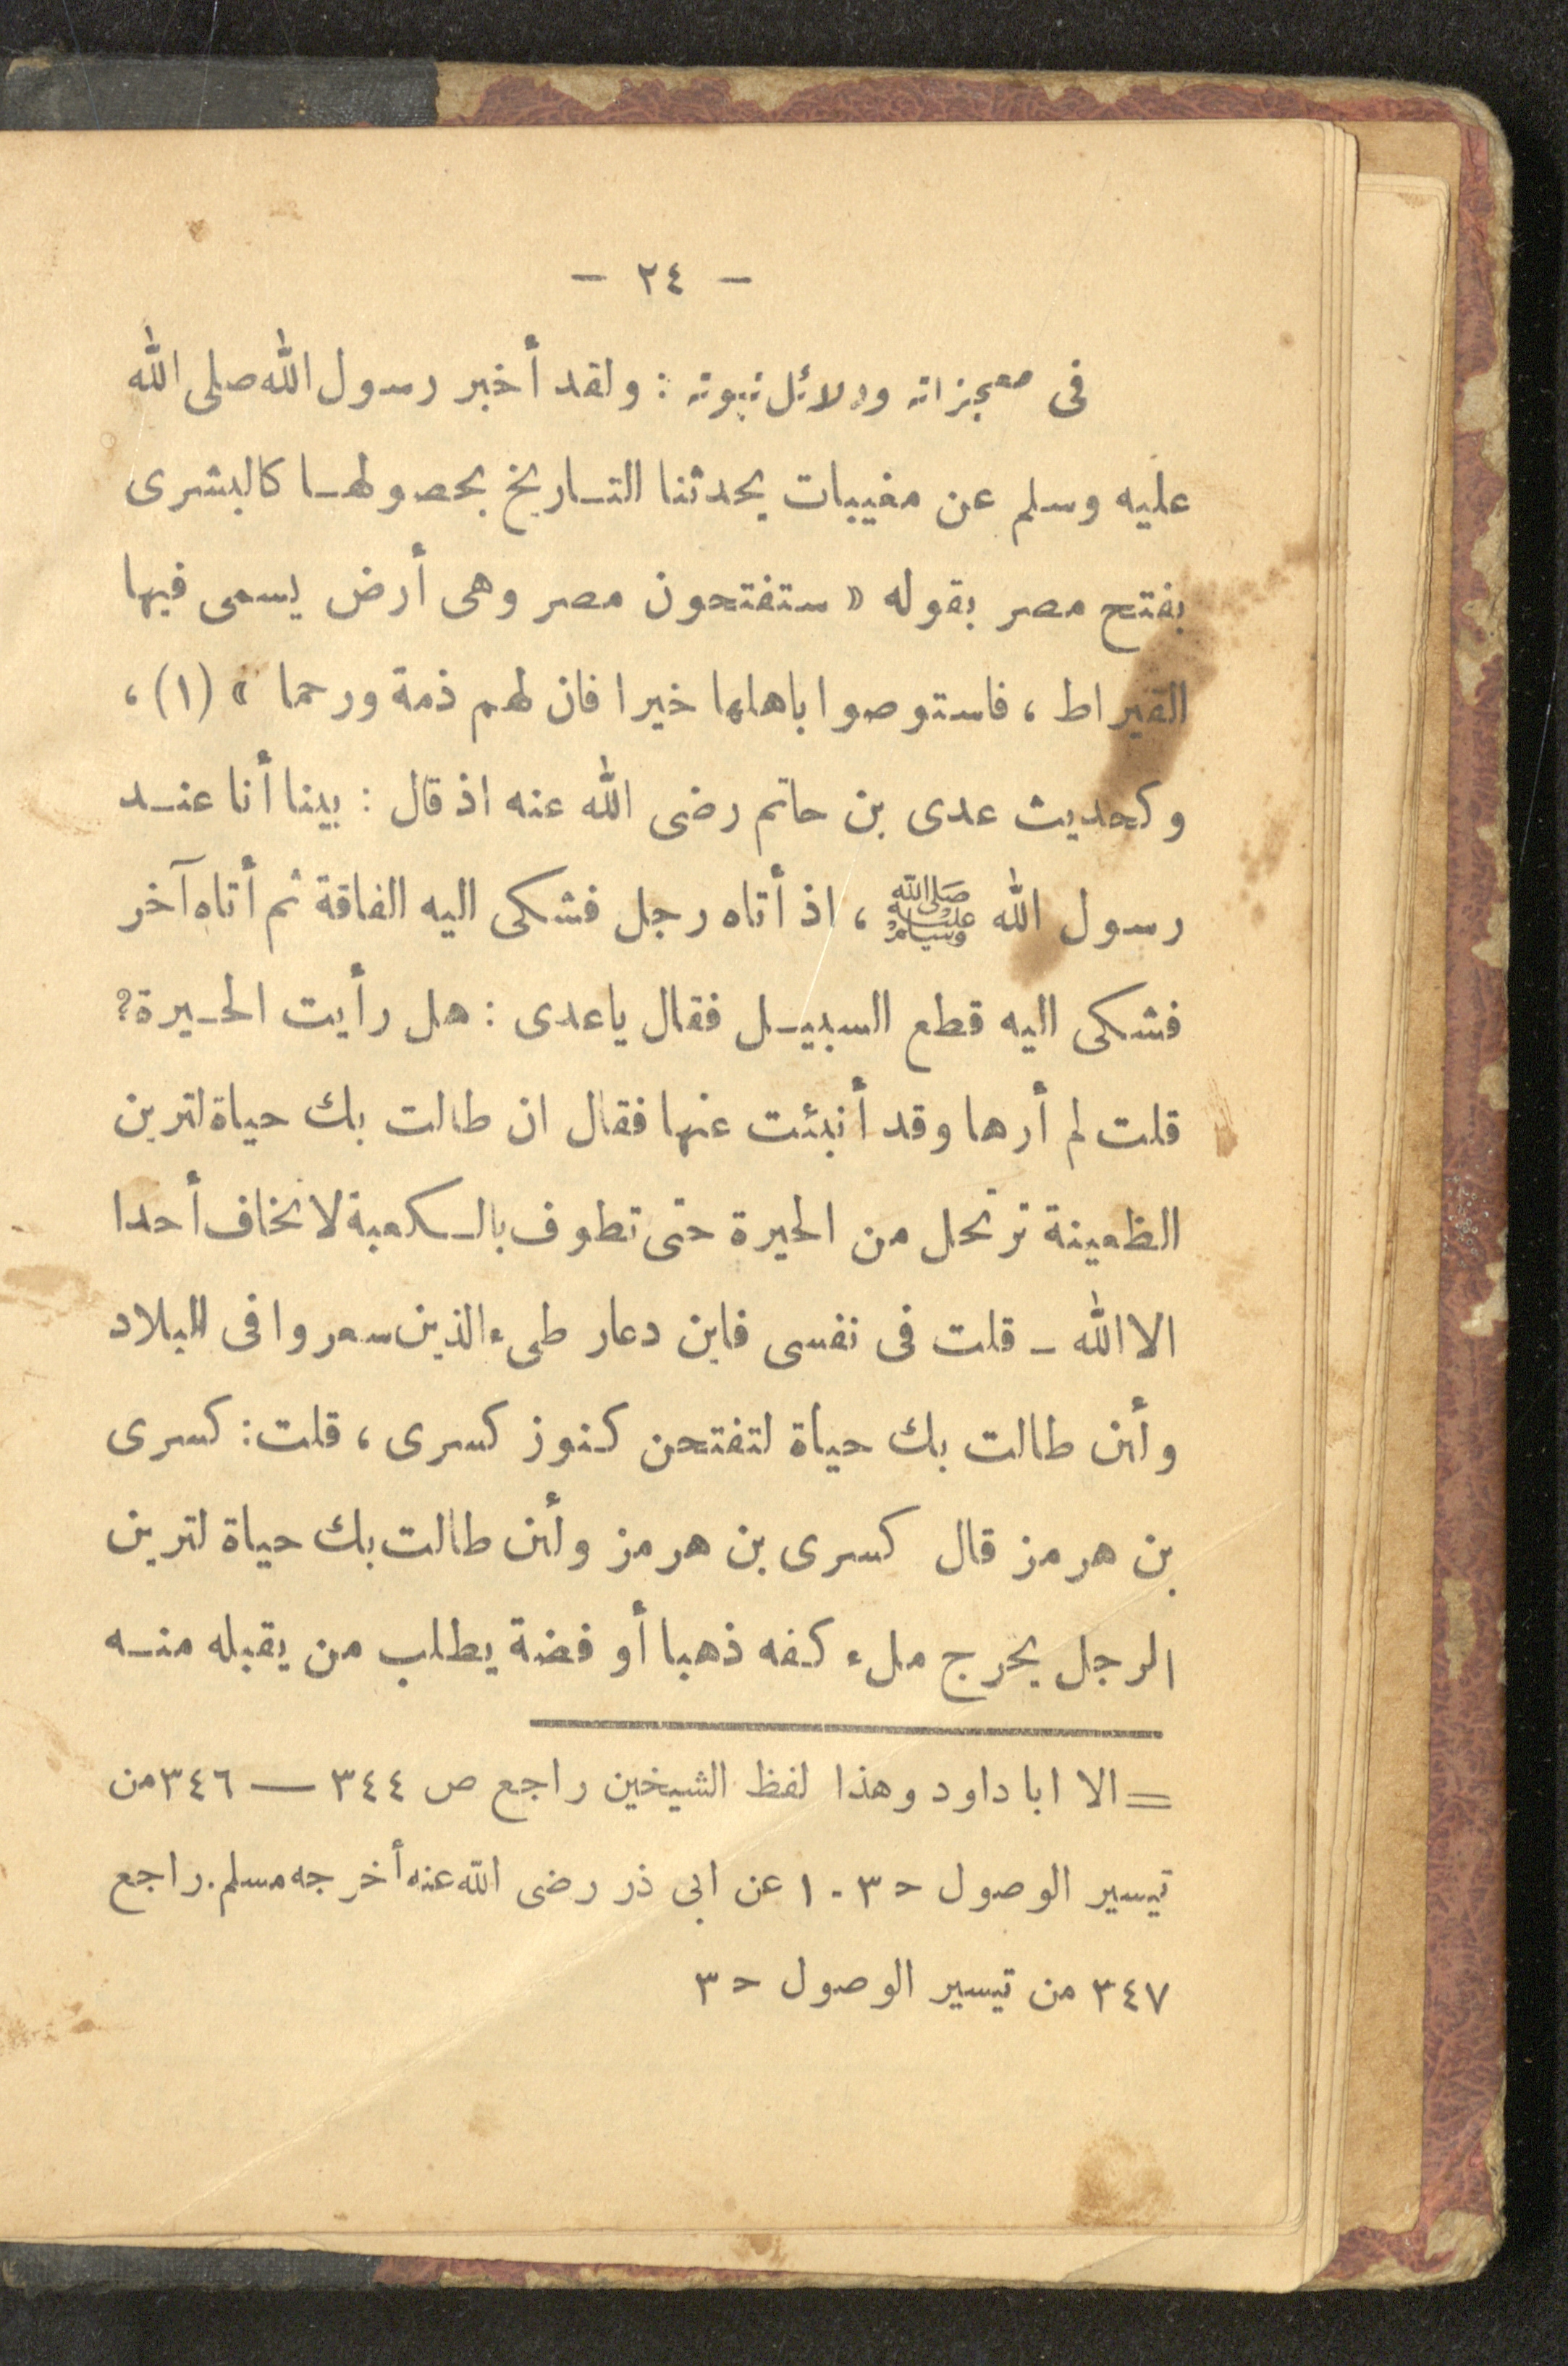 - ٢٤ -
فى معجزاته ودلائل نبوته : ولقد أخبر رسول الله صلى الله
عليه وسلم عن مغيبات يحدثنا التاريخ بحصولها كالبشرى
بفتح مصر بقوله « ستفتحون مصر وهى أرض يسمى فيها
القيراط ، فاستوصوا باهلها خيرا فان لهم ذمة ورحما » (١) ،
وكحديث عدى بن حاتم رضى الله عنه اذ قال : بينا أنا عند
رسول الله ﷺ ، اذ أتاه رجل فشكى اليه الفاقة ثم أتاه آخر
فشكى اليه قطع السبيل فقال ياعدى : هل رأيت الحيرة؟
قلت لم أرها وقد أنبئت عنها فقال ان طالت بك حياة لترين
الظعينة ترتحل من الحيرة حتى تطوف بالكعبة لا تخاف أحدا
الا الله - قلت فى نفسى فاين دعار طىء الذين سعروا فى البلاد
ولئن طالت بك حياة لتفتحن كنوز كسرى ، قلت : كسرى
بن هرمز قال كسرى بن هرمز ولئن طالت بك حياة لترين
الرجل يخرج ملء كفه ذهبا أو فضة يطلب من يقبله منه
= الا ابا داود وهذا لفظ الشيخين راجع ص ٣٤٤ — ٣٤٦ من
تيسير الوصول ح ٣ - ١ عن ابى ذر رضى الله عنه أخرجه مسلم. راجع
٣٤٧ من تيسير الوصول ح ٣